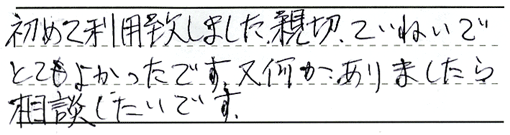 初めて利用致しました。親切、ていねいで
とてもよかったです。又何か、ありましたら
相談したいです。